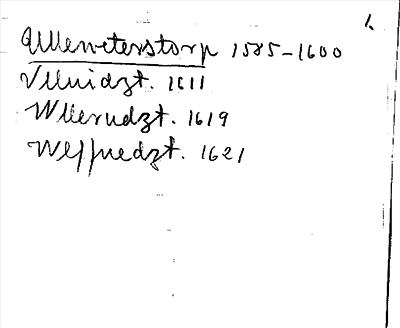 Ulleweterstorp 1585-1600
Vlluidzt. 1611
Wllerudzt. 1619
Welfuedzt. 1621